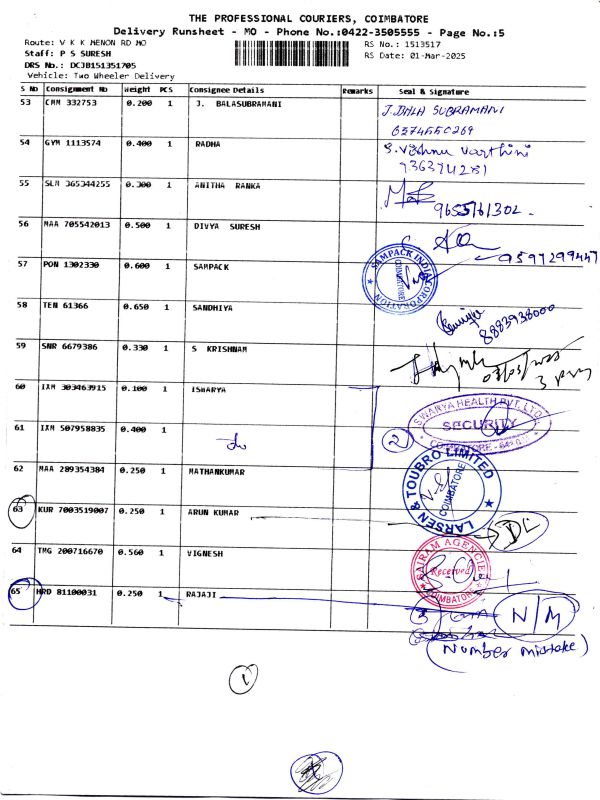 THE PROFESSIONAL COURIERS, COIMBATORE
Delivery Runsheet - MO - Phone No.:0422-3505555 - Page No.:5
Route: V K K MENON RD MO
RS No.: 1513517
Staff: P S SURESH
RS Date: 01-Mar-2025
DRS No.: DCJB151351705
Vehicle: Two Wheeler Delivery
S No Consignment No Weight PCS Consignee Details Remarks Seal & Signature
53 CMM 332753 0.200 1 J. BALASUBRAMANI J. BALA SUBRAMANI
54 GYM 1113574 0.400 1 RADHA S. Vishnu Varthini
9363741281
55 SLM 365344255 0.300 1 ANITHA RANKA
9655161302
56 MAA 705542013 0.500 1 DIVYA SURESH
9597299447
57 PON 1302330 0.600 1 SAMPACK SAMPACK INDIA CORPORATION COIMBATORE
58 TEN 61366 0.650 1 SANDHIYA
8883938000
59 SNR 6679386 0.330 1 S KRISHNAM
3 pm
60 IXM 303463915 0.100 1 ISWARYA SWARYA HEALTH PVT. LTD.
SECURITY
61 IXM 507958835 0.400 1 do 2
62 MAA 289354384 0.250 1 MATHANKUMAR LARSEN & TOUBRO LIMITED COIMBATORE
63 KUR 7003519007 0.250 1 ARUN KUMAR DL
64 TMG 200716670 0.560 1 VIGNESH SAIRAM AGENCIE
Received
COIMBATORE
65 HRD 81100031 0.250 1 RAJAJI N/M
(Number mistake)
1